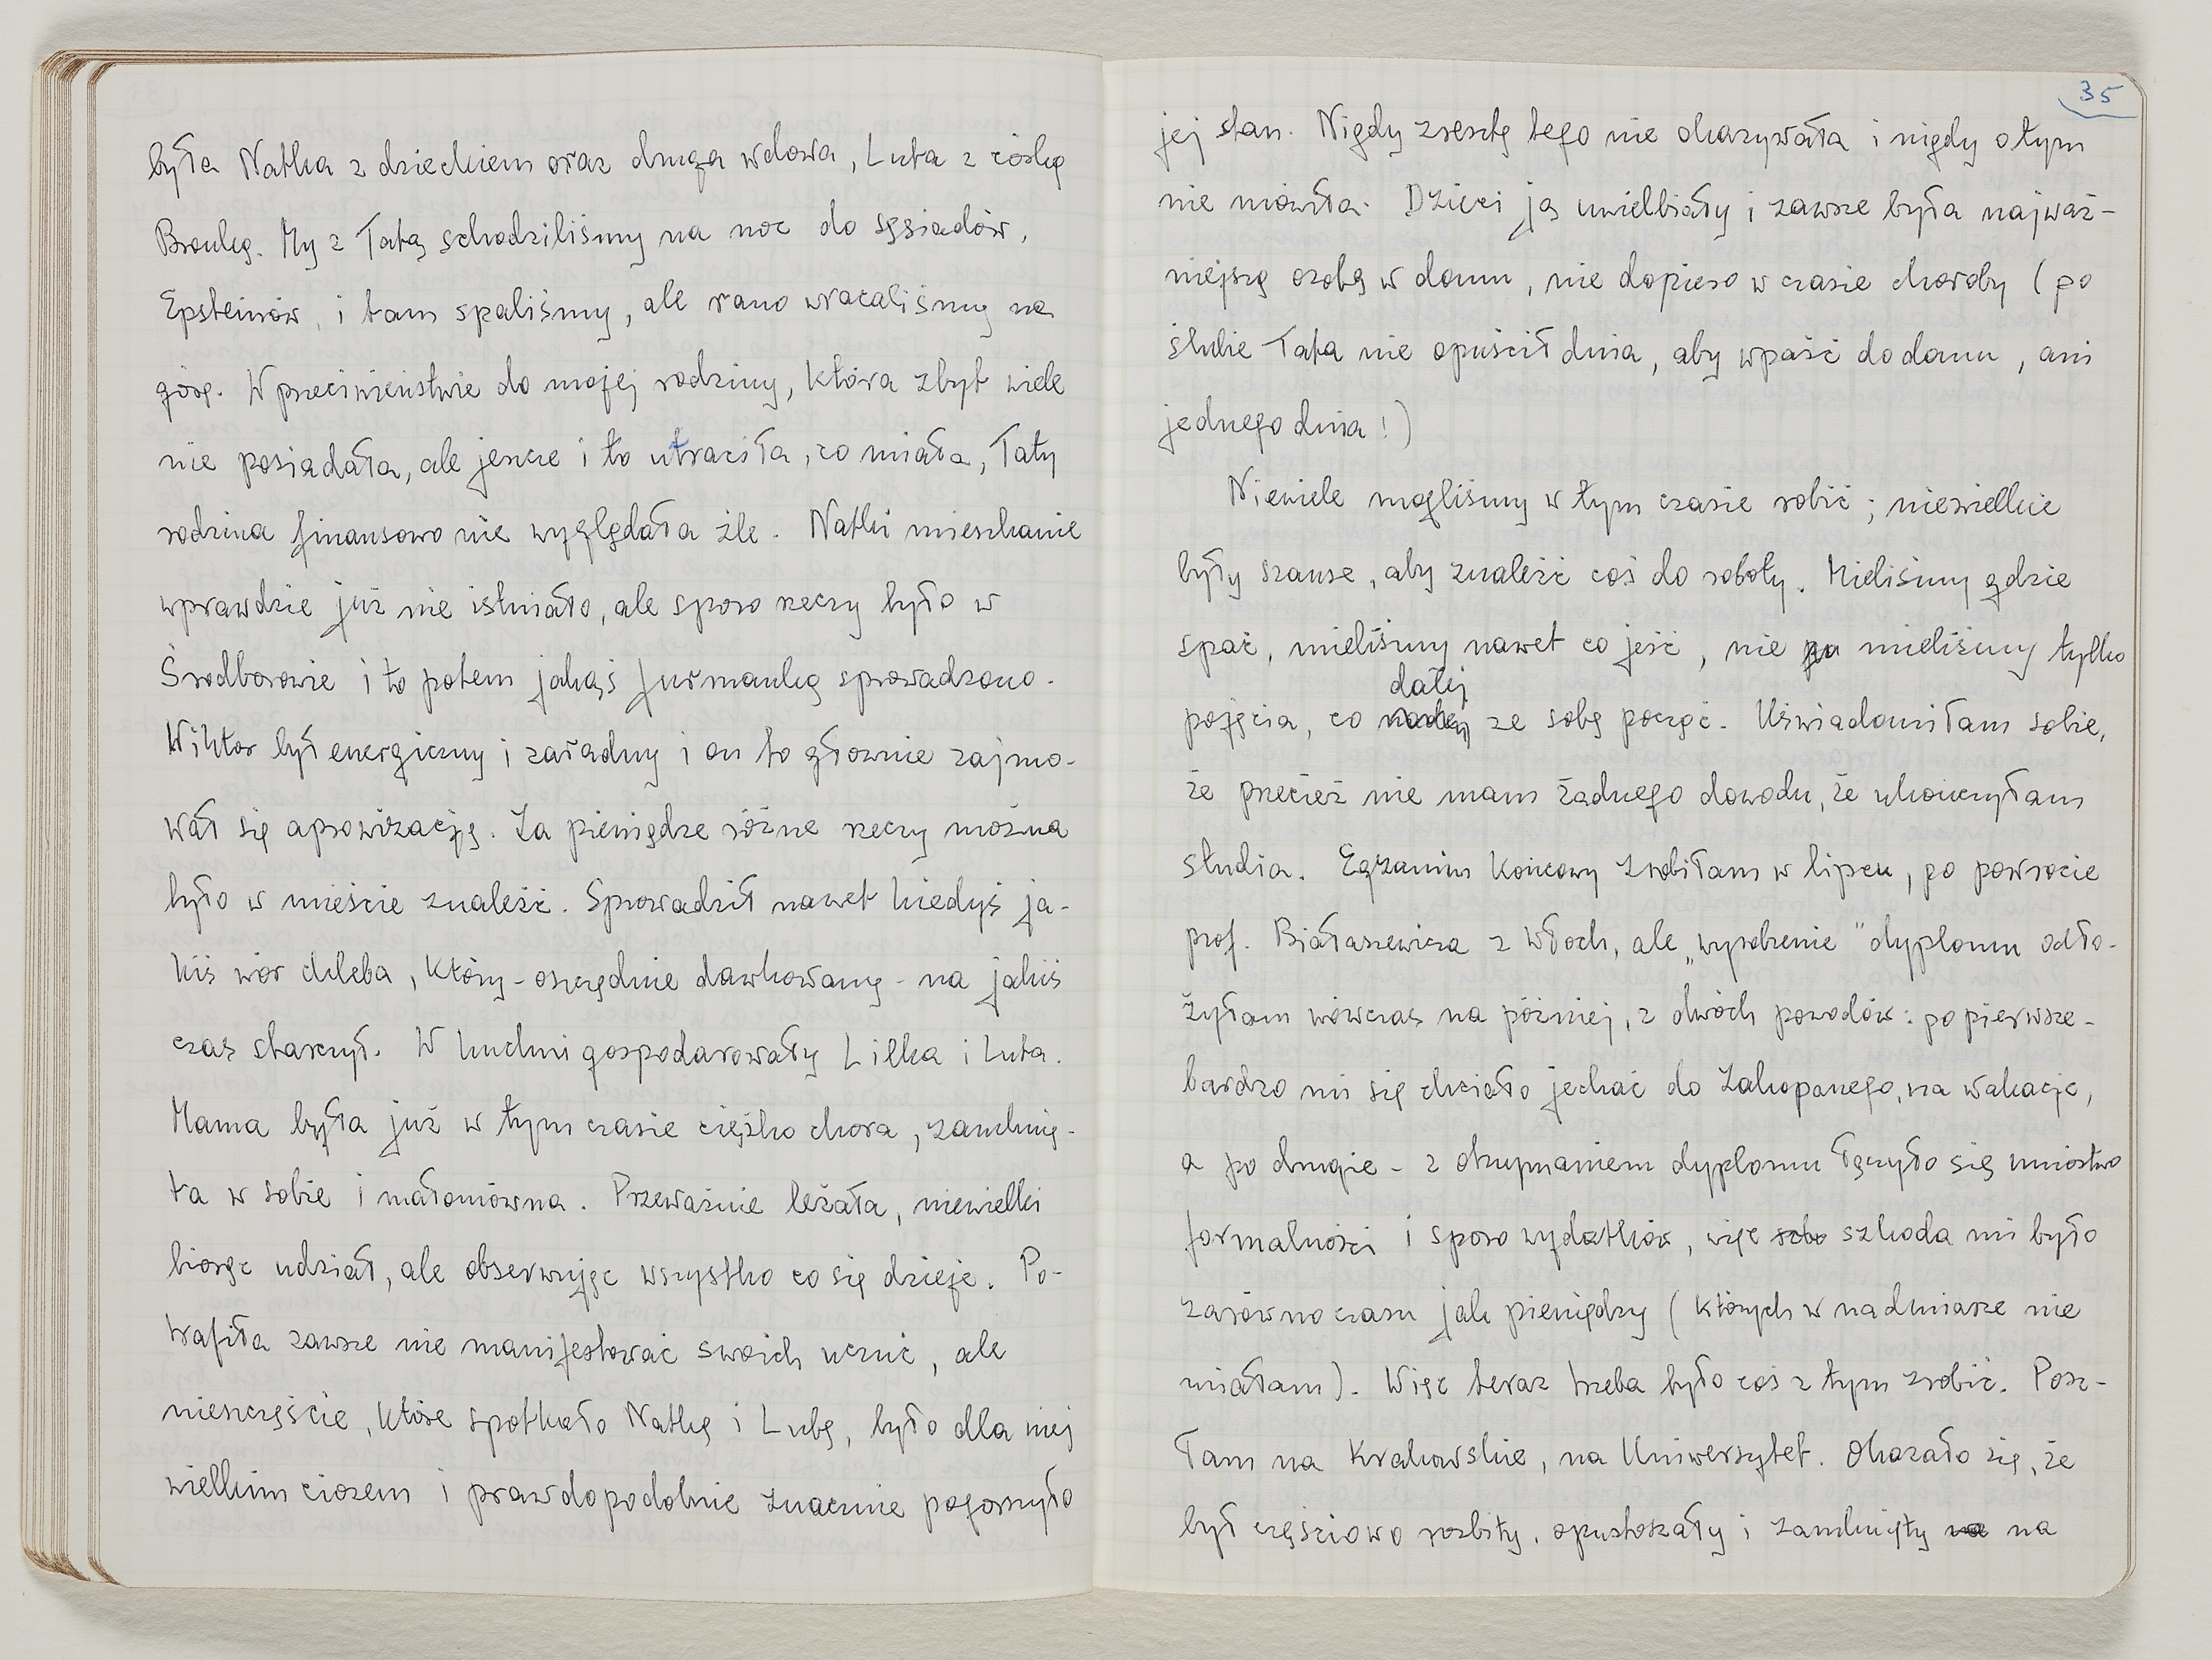 była Natka z dzieckiem oraz druga wdowa, Luta z córką
Bronką. My z Tatą schodziliśmy na noc do sąsiadów,
Epsteinów, i tam spaliśmy, ale rano wracaliśmy na
górę. W przeciwieństwie do mojej rodziny, która zbyt wiele
nie posiadała, ale jeszcze i to utraciła, co miała, Taty
rodzina finansowo nie wyglądała źle. Natki mieszkanie
wprawdzie już nie istniało, ale sporo rzeczy było w
Śródborowie i to potem jakąś furmanką sprowadzono.
Wiktor był energiczny i zaradny i on to głównie zajmo-
wał się aprowizacją. Za pieniądze różne rzeczy można
było w mieście znaleźć. Sprowadził nawet kiedyś ja-
kiś wór chleba, który - oszczędnie dawkowany - na jakiś
czas starczył. W kuchni gospodarowały Lilka i Luta.
Mama była już w tym czasie ciężko chora, zamknię-
ta w sobie i małomówna. Przeważnie leżała, niewielki
biorąc udział, ale obserwując wszystko co się dzieje. Po-
trafiła zawsze nie manifestować swoich uczuć, ale
nieszczęście, które spotkało Natkę i Lubę, było dla niej
wielkim ciosem i prawdopodobnie znacznie pogorszyło
35
jej stan. Nigdy zresztą tego nie okazywała i nigdy o tym
nie mówiła. Dzieci ją uwielbiały i zawsze była najważ-
niejszą osobą w domu, nie dopiero w czasie choroby (po
ślubie Tata nie opuścił dnia, aby wpaść do domu, ani
jednego dnia!)
Niewiele mogliśmy w tym czasie robić; niewielkie
były szanse, aby znaleźć coś do roboty. Mieliśmy gdzie
spać, mieliśmy nawet co jeść, nie mieliśmy tylko
dalej
pojęcia, co ze sobą począć. Uświadomiłam sobie,
że przecież nie mam żadnego dowodu, że ukończyłam
studia. Egzamin końcowy zrobiłam w lipcu, po powrocie
prof. Białaszewicza z Włoch, ale „wyrobienie" dyplomu odło-
żyłam wówczas na później, z dwóch powodów: po pierwsze -
bardzo mi się chciało jechać do Zakopanego, na wakacje,
a po drugie - z otrzymaniem dyplomu łączyło się mnóstwo
formalności i sporo wydatków, więc szkoda mi było
zarówno czasu jak pieniędzy (których w nadmiarze nie
miałam). Więc teraz trzeba było coś z tym zrobić. Posz-
łam na Krakowskie, na Uniwersytet. Okazało się, że
był częściowo rozbity, opustoszały i zamknięty na